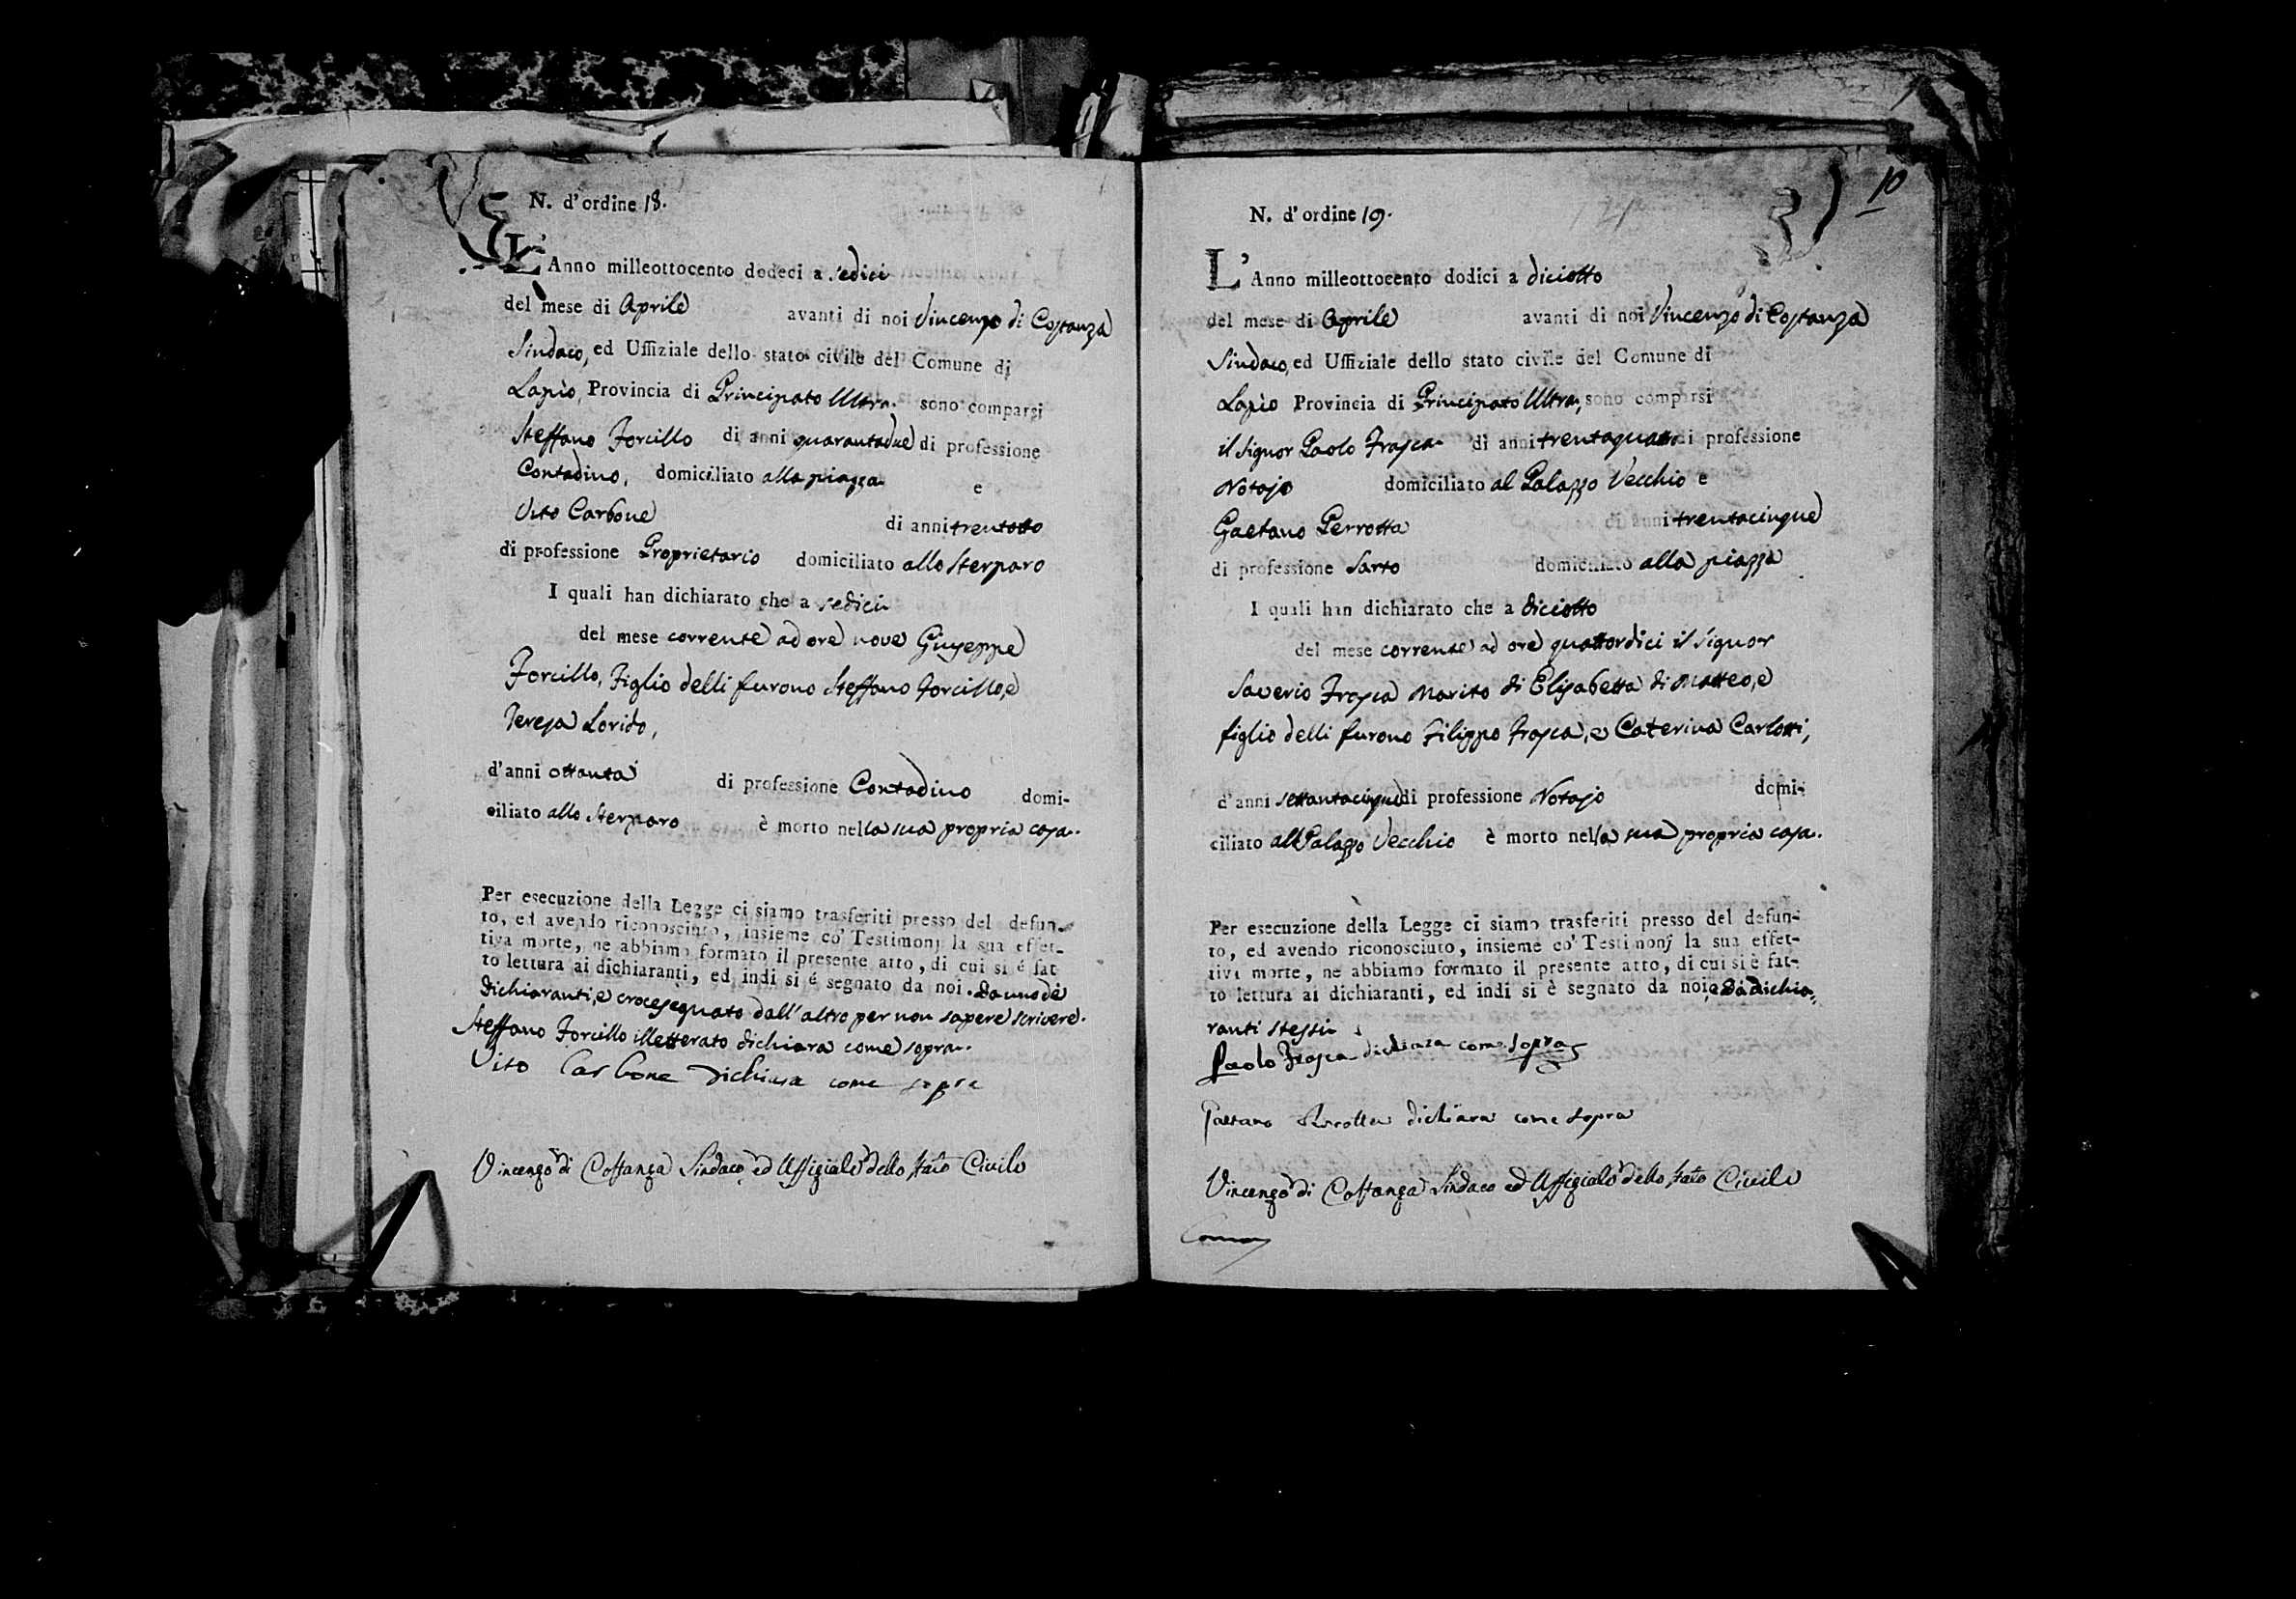 N. d'ordine 18.
L'Anno milleottocento dodeci a sedici
del mese di Aprile avanti di noi Vincenzo di Costanza
Sindaco, ed Uffiziale dello stato civile del Comune di
Lapìo, Provincia di Principato Ultra. sono comparsi
Steffano Forcillo di anni quarantadue di professione
Contadino, domiciliato alla piazza e
Vito Carbone di anni trentotto
di professione Proprietario domiciliato allo Sterparo
I quali han dichiarato che a sedici
del mese corrente ad ore nove Giuseppe
Forcillo, Figlio delli furono Steffano Forcillo, e
Teresa Lorido,
d'anni ottanta di professione Contadino domi-
ciliato allo Sterparo è morto nella sua propria casa.
Per esecuzione della Legge ci siamo trasferiti presso del defun-
to, ed avendo riconosciuto, insieme co' Testimonj la sua effet-
tiva morte, ne abbiamo formato il presente atto, di cui si é fat
to lettura ai dichiaranti, ed indi si é segnato da noi. da uno dè
dichiaranti, e crocesegnato dall'altro per non sapere scrivere.
Steffano Forcillo illetterato dichiara come sopra.
Vito Carbone dichiara come sopra
Vincenzo di Costanza Sindaco, ed Uffiziale dello stato Civile
10
N. d'ordine 19.
L'Anno milleottocento dodici a diciotto
del mese di Aprile avanti di noi Vincenzo di Costanza
Sindaco, ed Uffiziale dello stato civile del Comune di
Lapìo Provincia di Principato Ultra, sono comparsi
il Signor Paolo Frasca di anni trentaquattro di professione
Notajo domiciliato al Palazzo Vecchio e
Gaetano Perrotta di anni trentacinque
di professione Sarto domiciliato alla piazza
I quali han dichiarato che a diciotto
del mese corrente ad ore quattordici il Signor
Saverio Frasca Marito di Elisabetta di Matteo, e
figlio delli furono Filippo Frasca, e Caterina Carlotti,
d'anni settantacinque di professione Notajo domi-
ciliato al Palazzo Vecchio è morto nella sua propria casa.
Per esecuzione della Legge ci siamo trasferiti presso del defun-
to, ed avendo riconosciuto, insieme co' Testimonj la sua effet-
tiva morte, ne abbiamo formato il presente atto, di cui si è fat-
to lettura ai dichiaranti, ed indi si è segnato da noi, e dà dichia-
ranti stessi
Paolo Frasca dichiara come sopra
Gaetano Perrotta dichiara come sopra
Vincenzo di Costanza Sindaco ed Uffiziale dello stato Civile